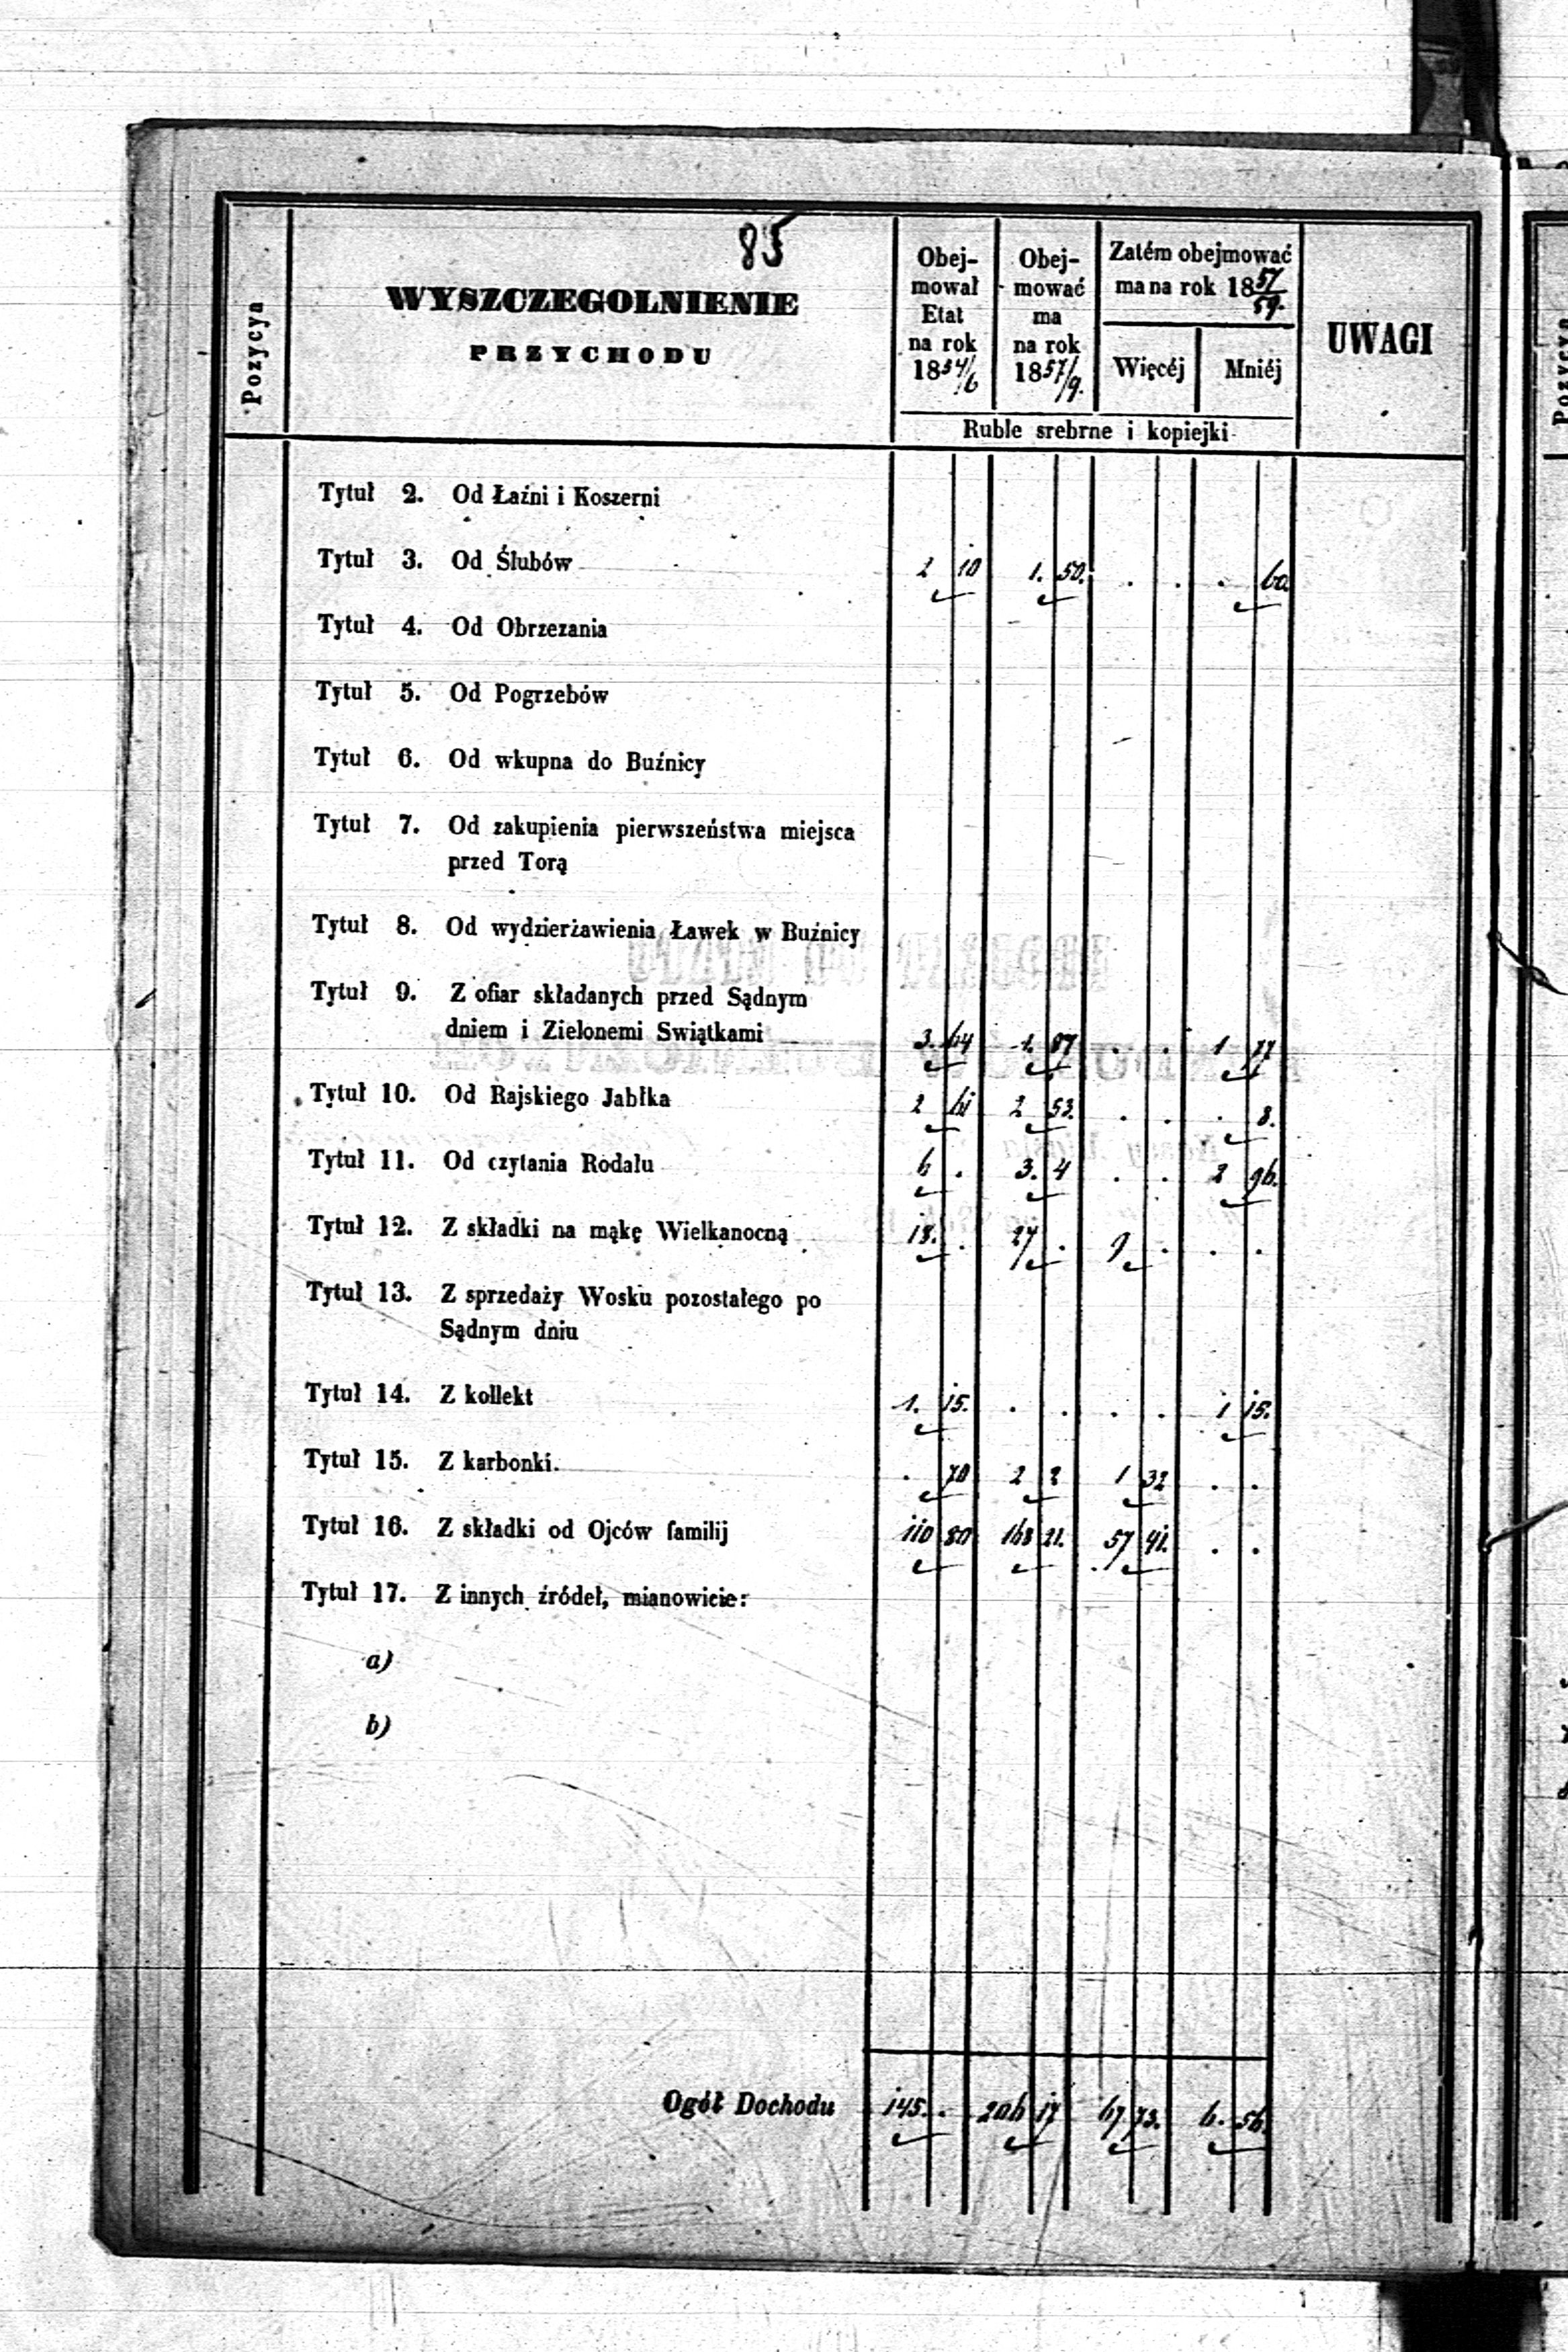 85
Pozycya
WYSZCZEGOLNIENIE
PRZYCHODU
Obej-
mował
Etat
na rok
1854/6
Obej-
mować
ma
na rok
1857/9.
Zatém obejmować
ma na rok 1857/59.
Więcéj Mniéj
UWAGI
Ruble srebrne i kopiejki
Tytuł 2. Od Łaźni i Koszerni
Tytuł 3. Od Ślubów 2 10 1. 50. . . . 60.
Tytuł 4. Od Obrzezania
Tytuł 5. Od Pogrzebów
Tytuł 6. Od wkupna do Buźnicy
Tytuł 7. Od zakupienia pierwszeństwa miejsca
przed Torą
Tytuł 8. Od wydzierżawienia Ławek w Buźnicy
Tytuł 9. Z ofiar składanych przed Sądnym
dniem i Zielonemi Swiątkami 3. 64 1. 87 . . 1 77
Tytuł 10. Od Rajskiego Jabłka 2 61 2 53. . . . 8.
Tytuł 11. Od czytania Rodału 6 . 3. 4 . . 2 96.
Tytuł 12. Z składki na mąkę Wielkanocną 18. . 27 . 9 . . .
Tytuł 13. Z sprzedaży Wosku pozostałego po
Sądnym dniu
Tytuł 14. Z kollekt 1. 15. . . . . 1 15.
Tytuł 15. Z karbonki. . 70 2 2 1 32 . .
Tytuł 16. Z składki od Ojców familij 110 80 168 21. 57 41. . .
Tytuł 17. Z innych źródeł, mianowicie:
a)
b)
Ogół Dochodu 145. . 206 17 67 73. 6. 56.
Pozycya